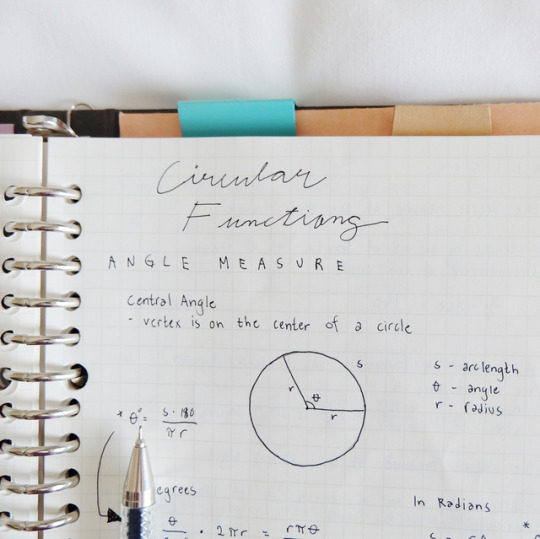 Circular
Functions
ANGLE MEASURE
Central Angle
- vertex is on the center of a circle
s
r
θ
r
s - arclength
θ - angle
r - radius
* θ° = s·180
πr
egrees
In Radians
*
θ · 2πr = rπθ